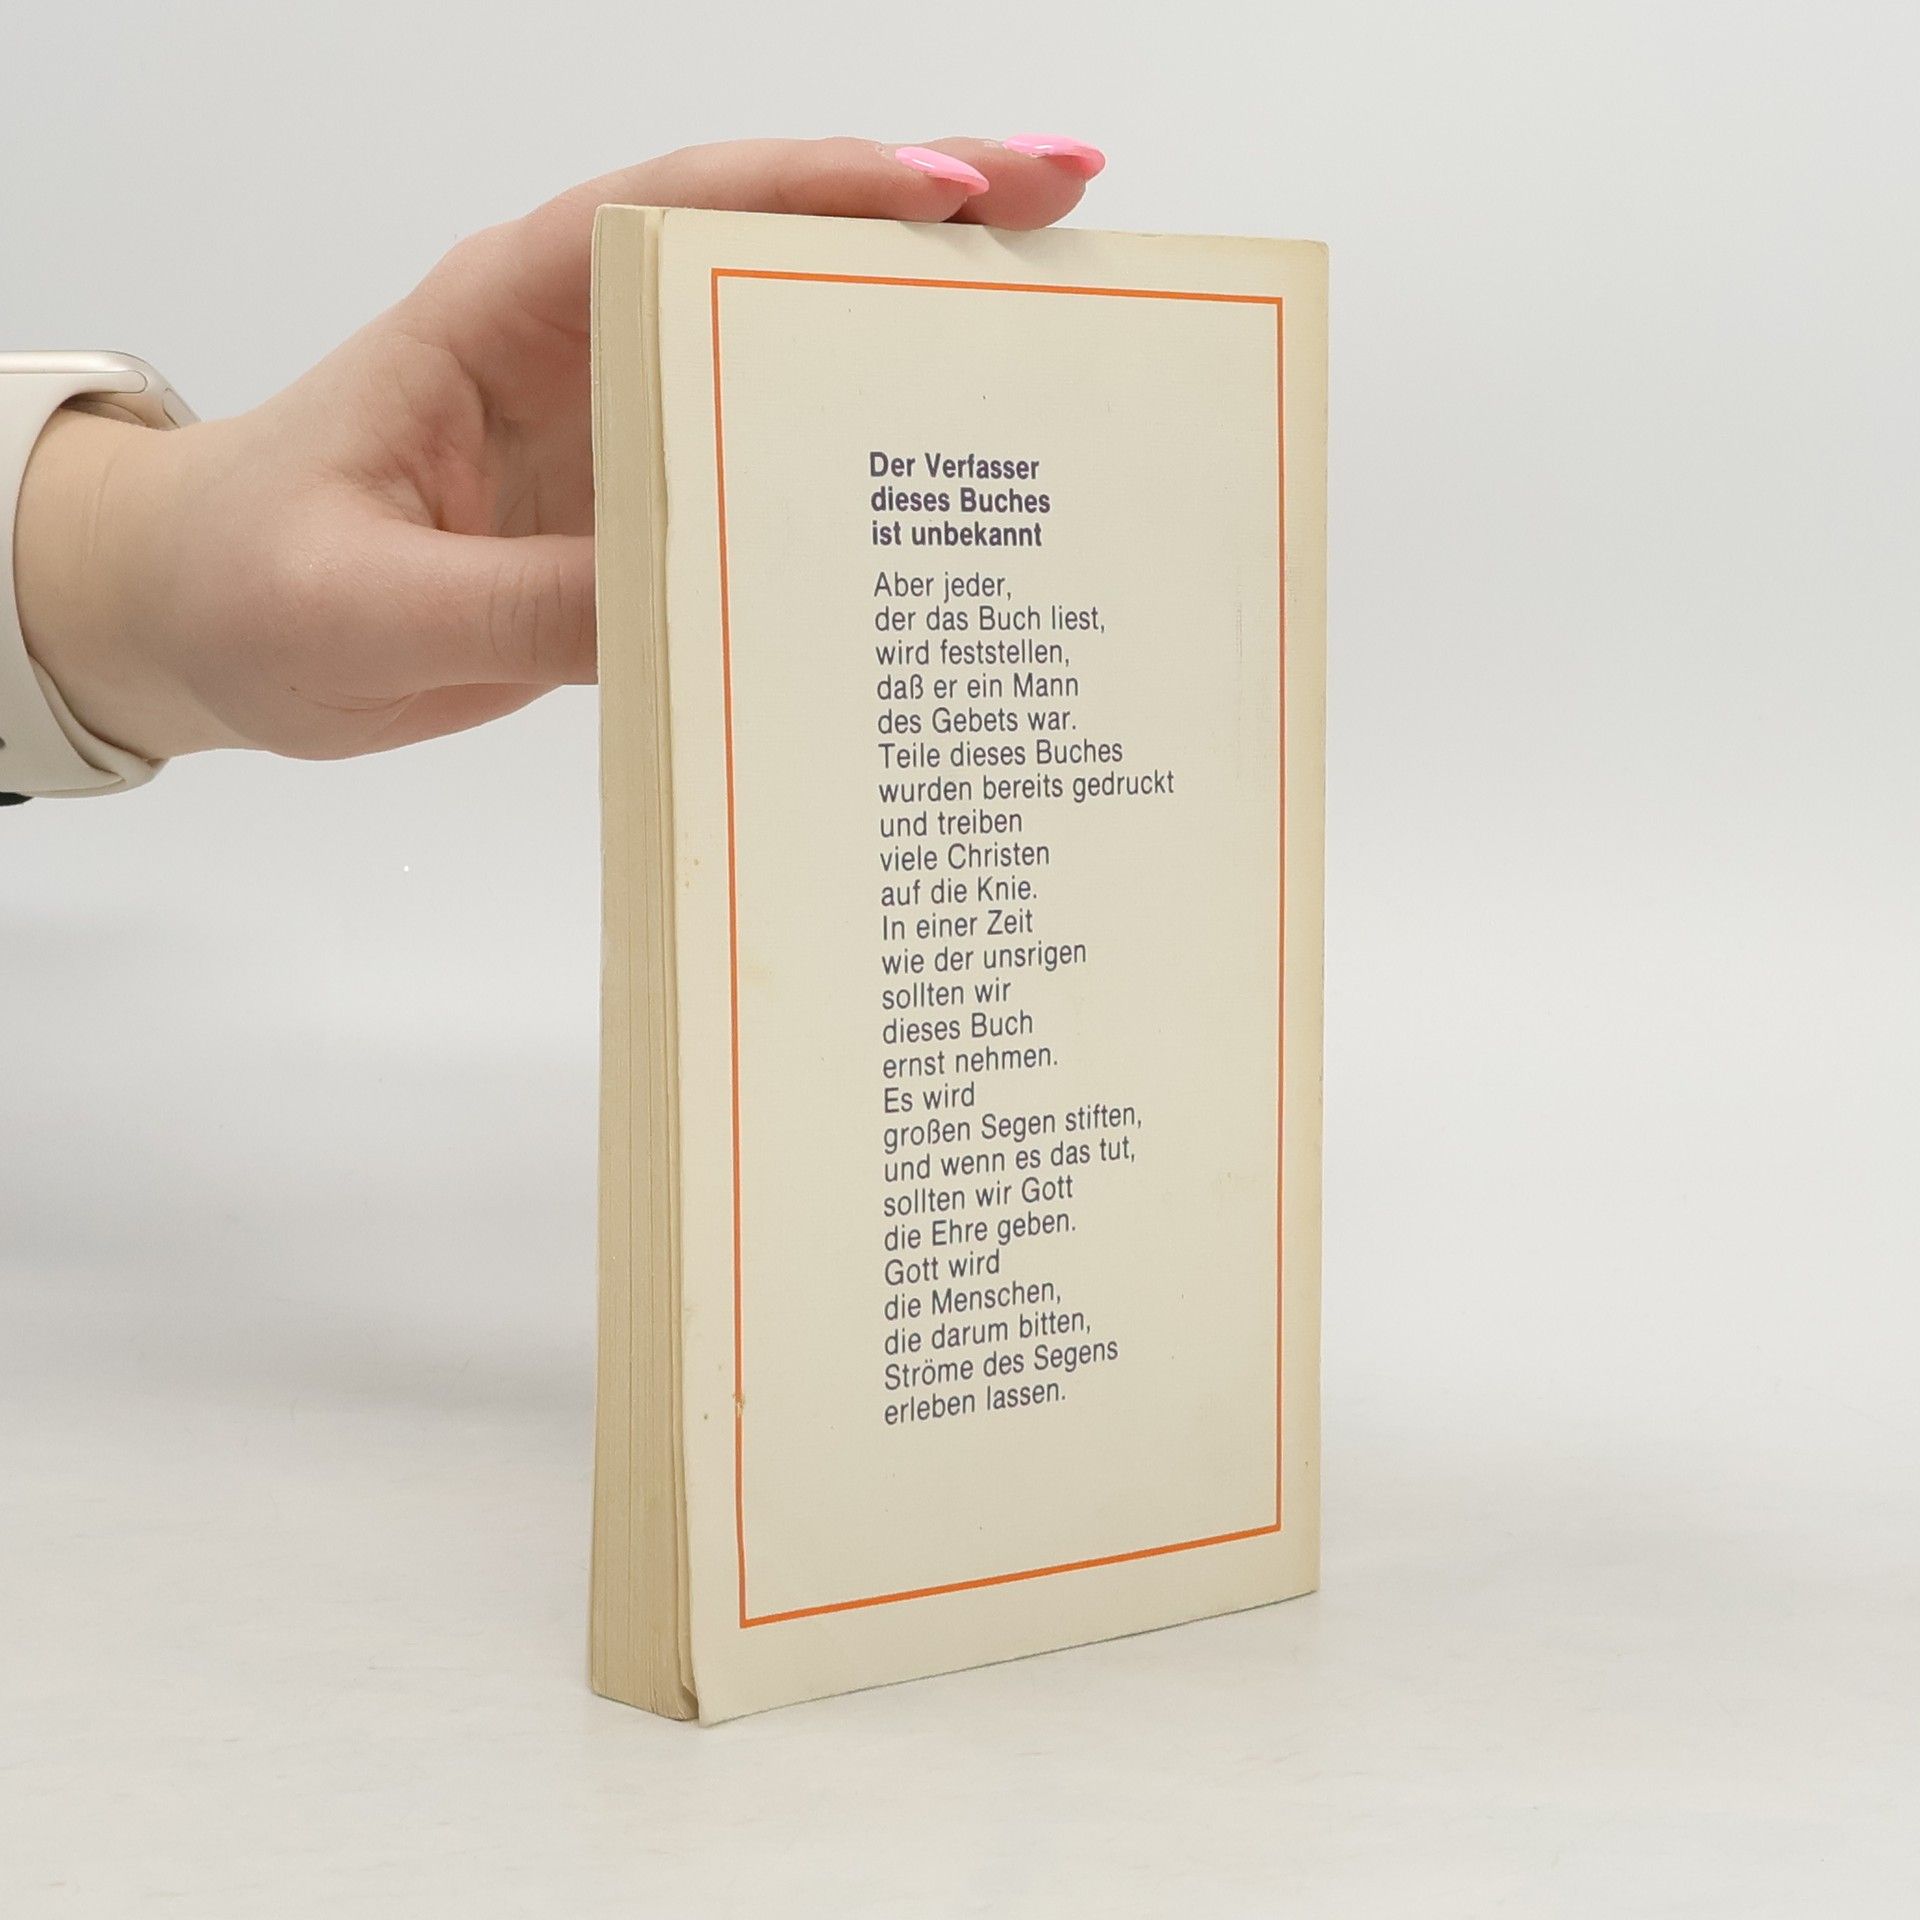 Der Verfasser
dieses Buches
ist unbekannt
Aber jeder,
der das Buch liest,
wird feststellen,
daß er ein Mann
des Gebets war.
Teile dieses Buches
wurden bereits gedruckt
und treiben
viele Christen
auf die Knie.
In einer Zeit
wie der unsrigen
sollten wir
dieses Buch
ernst nehmen.
Es wird
großen Segen stiften,
und wenn es das tut,
sollten wir Gott
die Ehre geben.
Gott wird
die Menschen,
die darum bitten,
Ströme des Segens
erleben lassen.